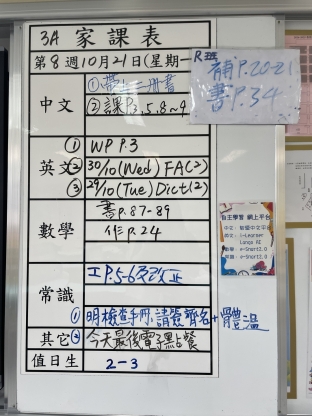 3A 家課表
第8週10月21日(星期一
R班
補P.20-21
書P.34
中文
①帶上一冊書
②課P3,5,8~9
英文
① WP P.3
② 30/10(Wed) FA(2)
③ 29/10(Tue) Dict(2)
數學
書P.87-89
作P.24
常識
工P.5-6及改正
①明檢查手冊,請簽齊名+體溫
其它
②今天最後電子點餐
值日生
2-3
自主學習 網上平台
中文: 敏學中文平台
英文: i-Learner
Lango AI
數學: e-Smart2.0
常識: e-Smart2.0